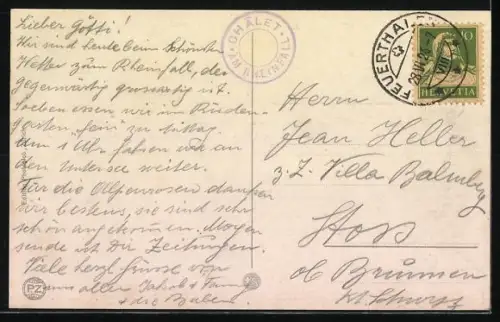 Lieber Götti!
Wir sind heute beim schönsten
Wetter zum Rheinfall, der
gegenwärtig grossartig ist.
Soeben essen wir im Rüden-
garten "fein" zu Mittag.
Um 1 Uhr fahren wir an
den Untersee weiter.
Für die Alpenrosen danken
wir bestens, sie sind sehr
schön angekommen. Morgen
sende ich Dir Zeitungen.
Viele herzl. Grüsse von
uns allen Jakob &
& die Buben
PZ
CHÂLET
AM RHEINFALL
FEUERTHALEN
28.VII.2
10
HELVETIA
Herrn
Jean Heller
z. Z. Villa Balmberg
Stoss
ob Brunnen
Kt. Schwyz